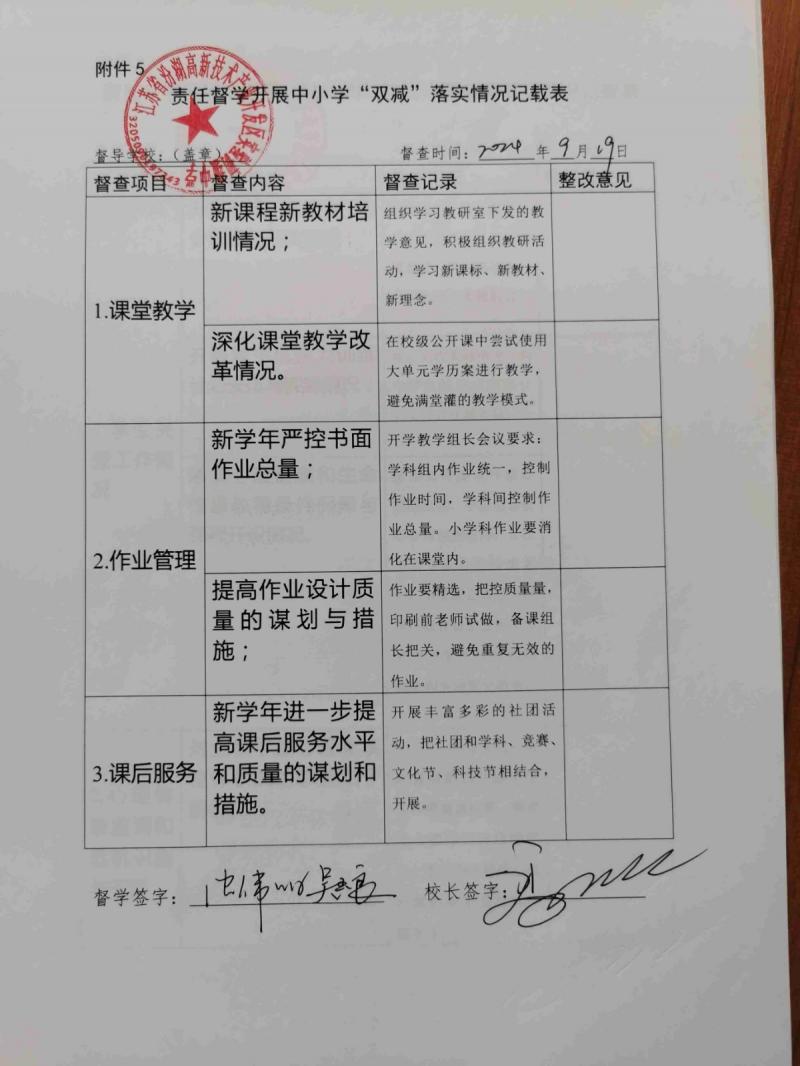 附件 5
责任督学开展中小学“双减”落实情况记载表
督导学校：（盖章）
督查时间：2024 年 9 月 19 日
督查项目 督查内容 督查记录 整改意见
1.课堂教学
新课程新教材培
训情况；
组织学习教研室下发的教
学意见，积极组织教研活
动，学习新课标、新教材、
新理念。
深化课堂教学改
革情况。
在校级公开课中尝试使用
大单元学历案进行教学，
避免满堂灌的教学模式。
2.作业管理
新学年严控书面
作业总量；
开学教学组长会议要求：
学科组内作业统一，控制
作业时间，学科间控制作
业总量。小学科作业要消
化在课堂内。
提高作业设计质
量的谋划与措
施；
作业要精选，把控质量量，
印刷前老师试做，备课组
长把关，避免重复无效的
作业。
3.课后服务
新学年进一步提
高课后服务水平
和质量的谋划和
措施。
开展丰富多彩的社团活
动，把社团和学科、竞赛、
文化节、科技节相结合，
开展。
督学签字：
校长签字：